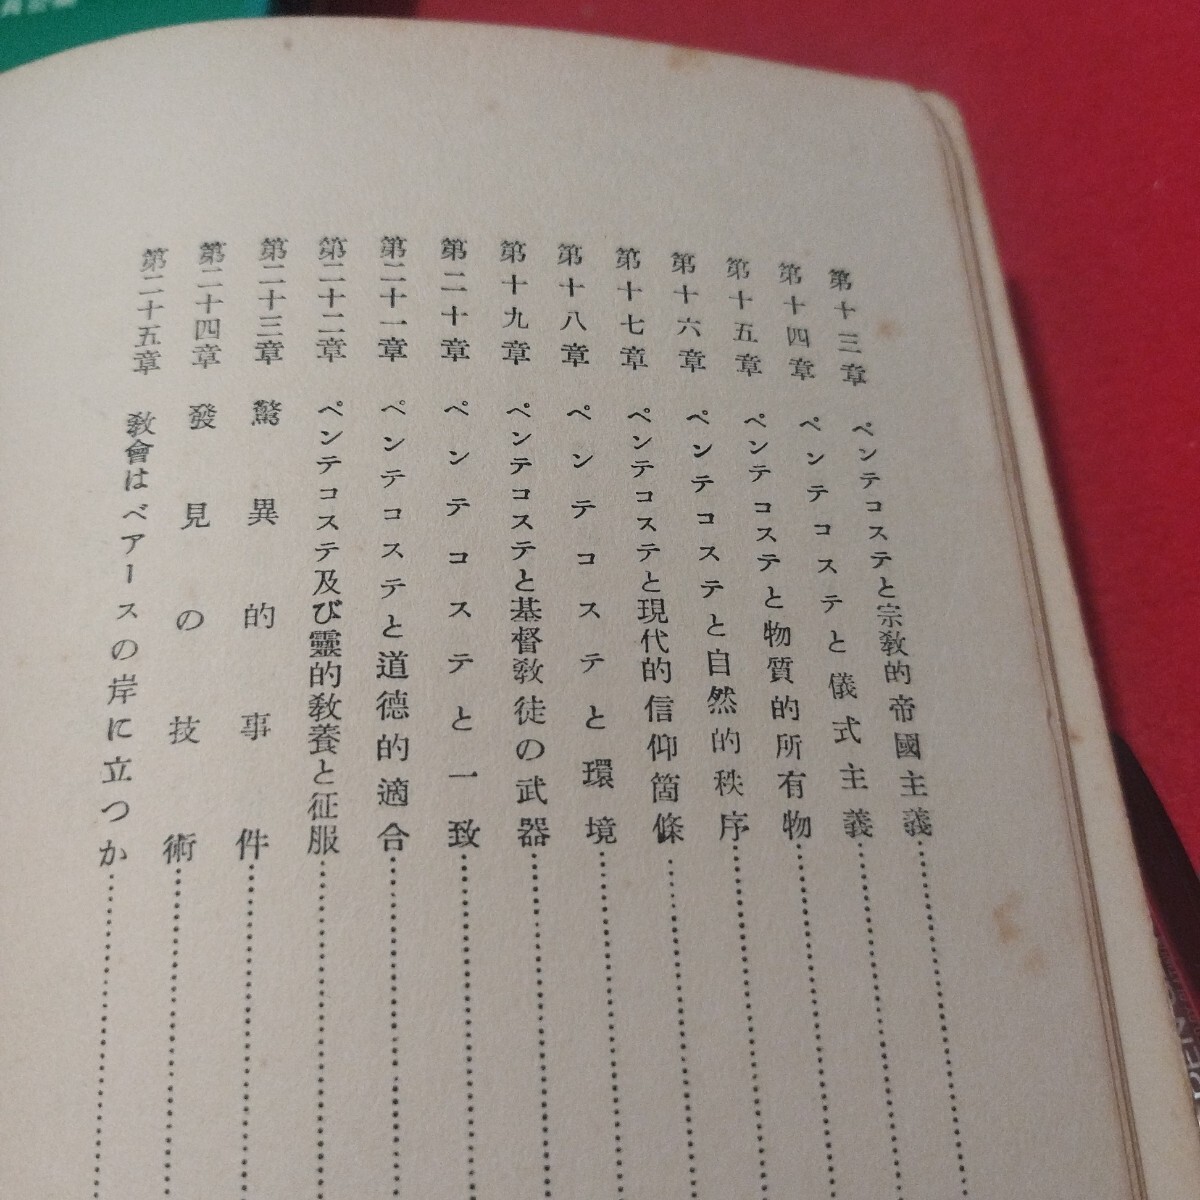 第十三章 ペンテコステと宗教的帝國主義
第十四章 ペンテコステと儀式主義
第十五章 ペンテコステと物質的所有物
第十六章 ペンテコステと自然的秩序
第十七章 ペンテコステと現代的信仰箇條
第十八章 ペンテコステと環境
第十九章 ペンテコステと基督敎徒の武器
第二十章 ペンテコステと一致
第二十一章 ペンテコステと道德的適合
第二十二章 ペンテコステ及び靈的敎養と征服
第二十三章 驚異的事件
第二十四章 發見の技術
第二十五章 敎會はベアースの岸に立つか